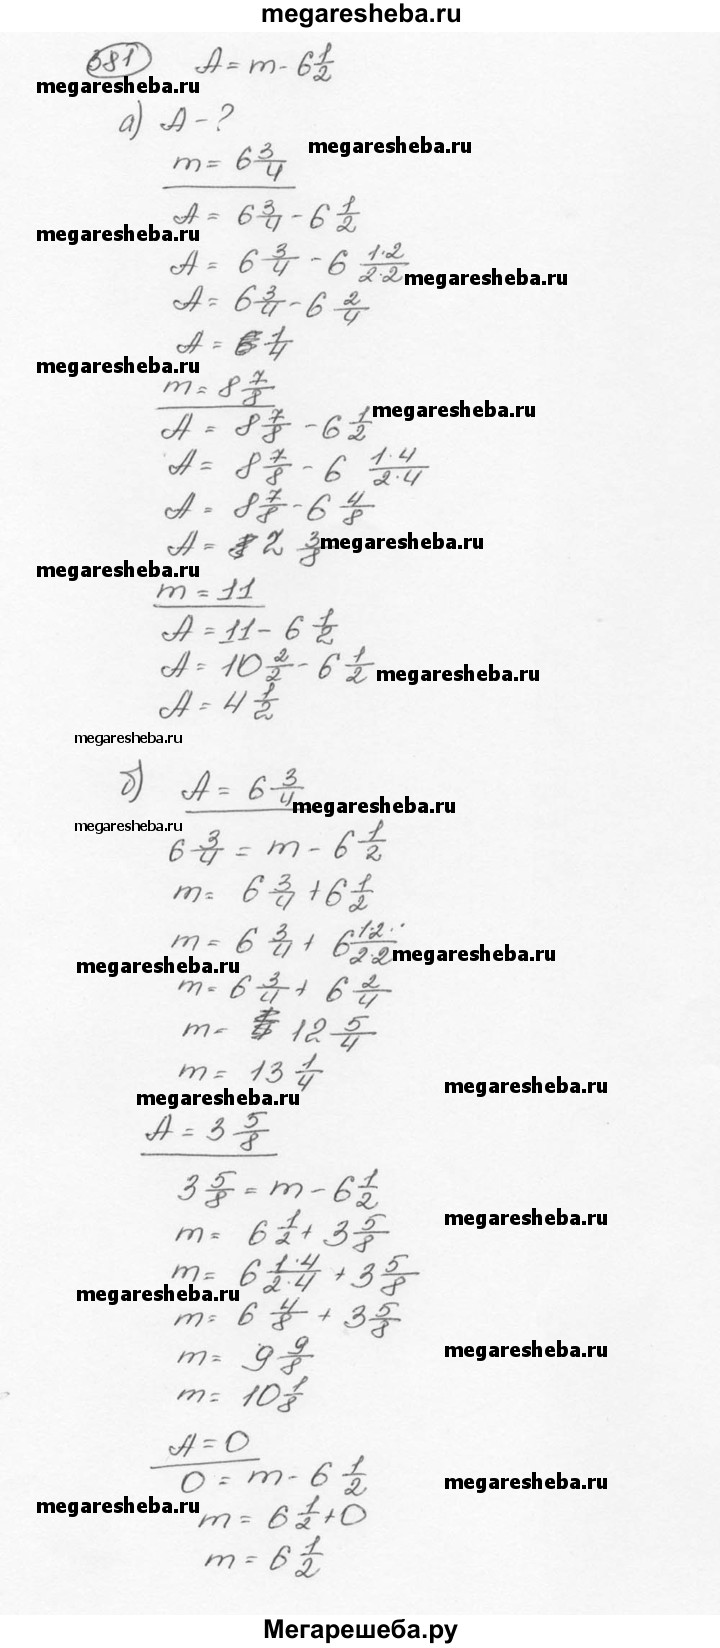 megaresheba.ru
381 A = m - 6 1/2
megaresheba.ru
а) A - ?
megaresheba.ru
m = 6 3/4
A = 6 3/4 - 6 1/2
megaresheba.ru
A = 6 3/4 - 6 1·2/2·2
megaresheba.ru
A = 6 3/4 - 6 2/4
A = 1/4
megaresheba.ru
m = 8 7/8
megaresheba.ru
A = 8 7/8 - 6 1/2
A = 8 7/8 - 6 1·4/2·4
A = 8 7/8 - 6 4/8
A = 2 3/8
megaresheba.ru
megaresheba.ru
m = 11
A = 11 - 6 1/2
A = 10 2/2 - 6 1/2
megaresheba.ru
A = 4 1/2
megaresheba.ru
б) A = 6 3/4
megaresheba.ru
megaresheba.ru
6 3/4 = m - 6 1/2
m = 6 3/4 + 6 1/2
m = 6 3/4 + 6 1·2/2·2
megaresheba.ru
megaresheba.ru
m = 6 3/4 + 6 2/4
m = 12 5/4
m = 13 1/4
megaresheba.ru
megaresheba.ru
A = 3 5/8
3 5/8 = m - 6 1/2
megaresheba.ru
m = 6 1/2 + 3 5/8
m = 6 1·4/2·4 + 3 5/8
megaresheba.ru
m = 6 4/8 + 3 5/8
megaresheba.ru
m = 9 9/8
m = 10 1/8
A = 0
0 = m - 6 1/2
megaresheba.ru
megaresheba.ru
m = 6 1/2 + 0
m = 6 1/2
Мегарешеба.ру